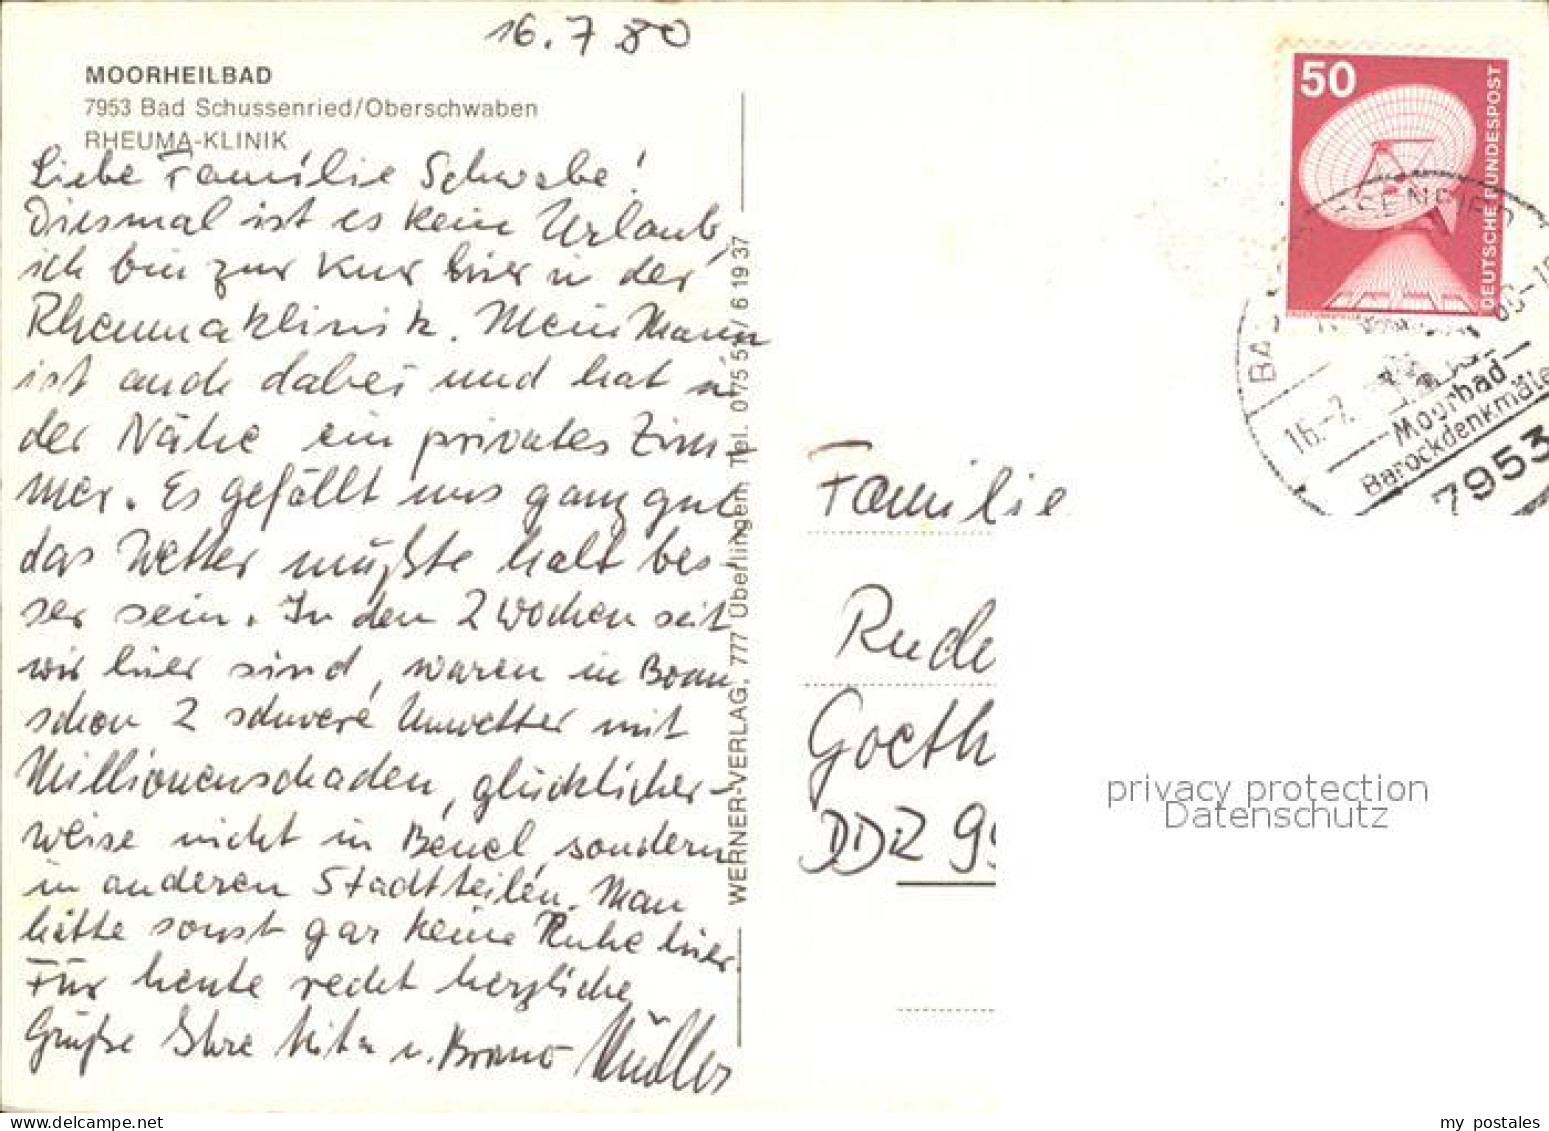 16.7 80
MOORHEILBAD
7953 Bad Schussenried/Oberschwaben
RHEUMA-KLINIK
Liebe Familie Schwabe!
Diesmal ist es kein Urlaub,
ich bin zur Kur hier in der
Rheumaklinik. Mein Mann
ist auch dabei und hat in
der Nähe ein privates Zim-
mer. Es gefällt uns ganz gut
das Wetter müßte halt bes-
ser sein. In den 2 Wochen seit
wir hier sind, waren in Bonn
schon 2 schwere Unwetter mit
Millionenschaden, glücklicher-
weise nicht in Beuel, sondern
in anderen Stadtteilen. Man
hätte sonst gar keine Ruhe hier.
Für heute recht herzliche
Grüße Ihre u. Bruno Müller
WERNER-VERLAG, 777 Überlingen, Tel. 075 51 / 6 19 37
50
DEUTSCHE BUNDESPOST
16.-7.
Moorbad
Barockdenkmäle
7953
Familie
Rude
Goeth
DDR 99
privacy protection
Datenschutz
my postales